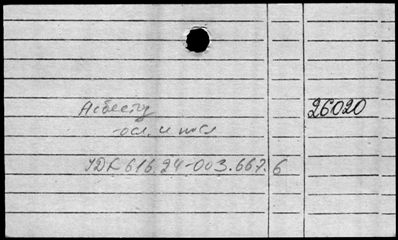 Асбесту 26020
-осл. и посл
УДК 616.24-003.667.6